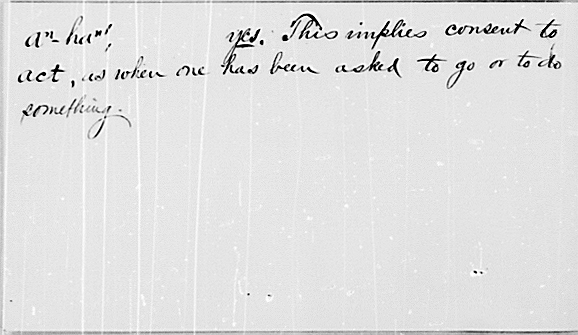 aⁿ-haⁿ', yes. This implies consent to
act, as when one has been asked to go or to do
something.